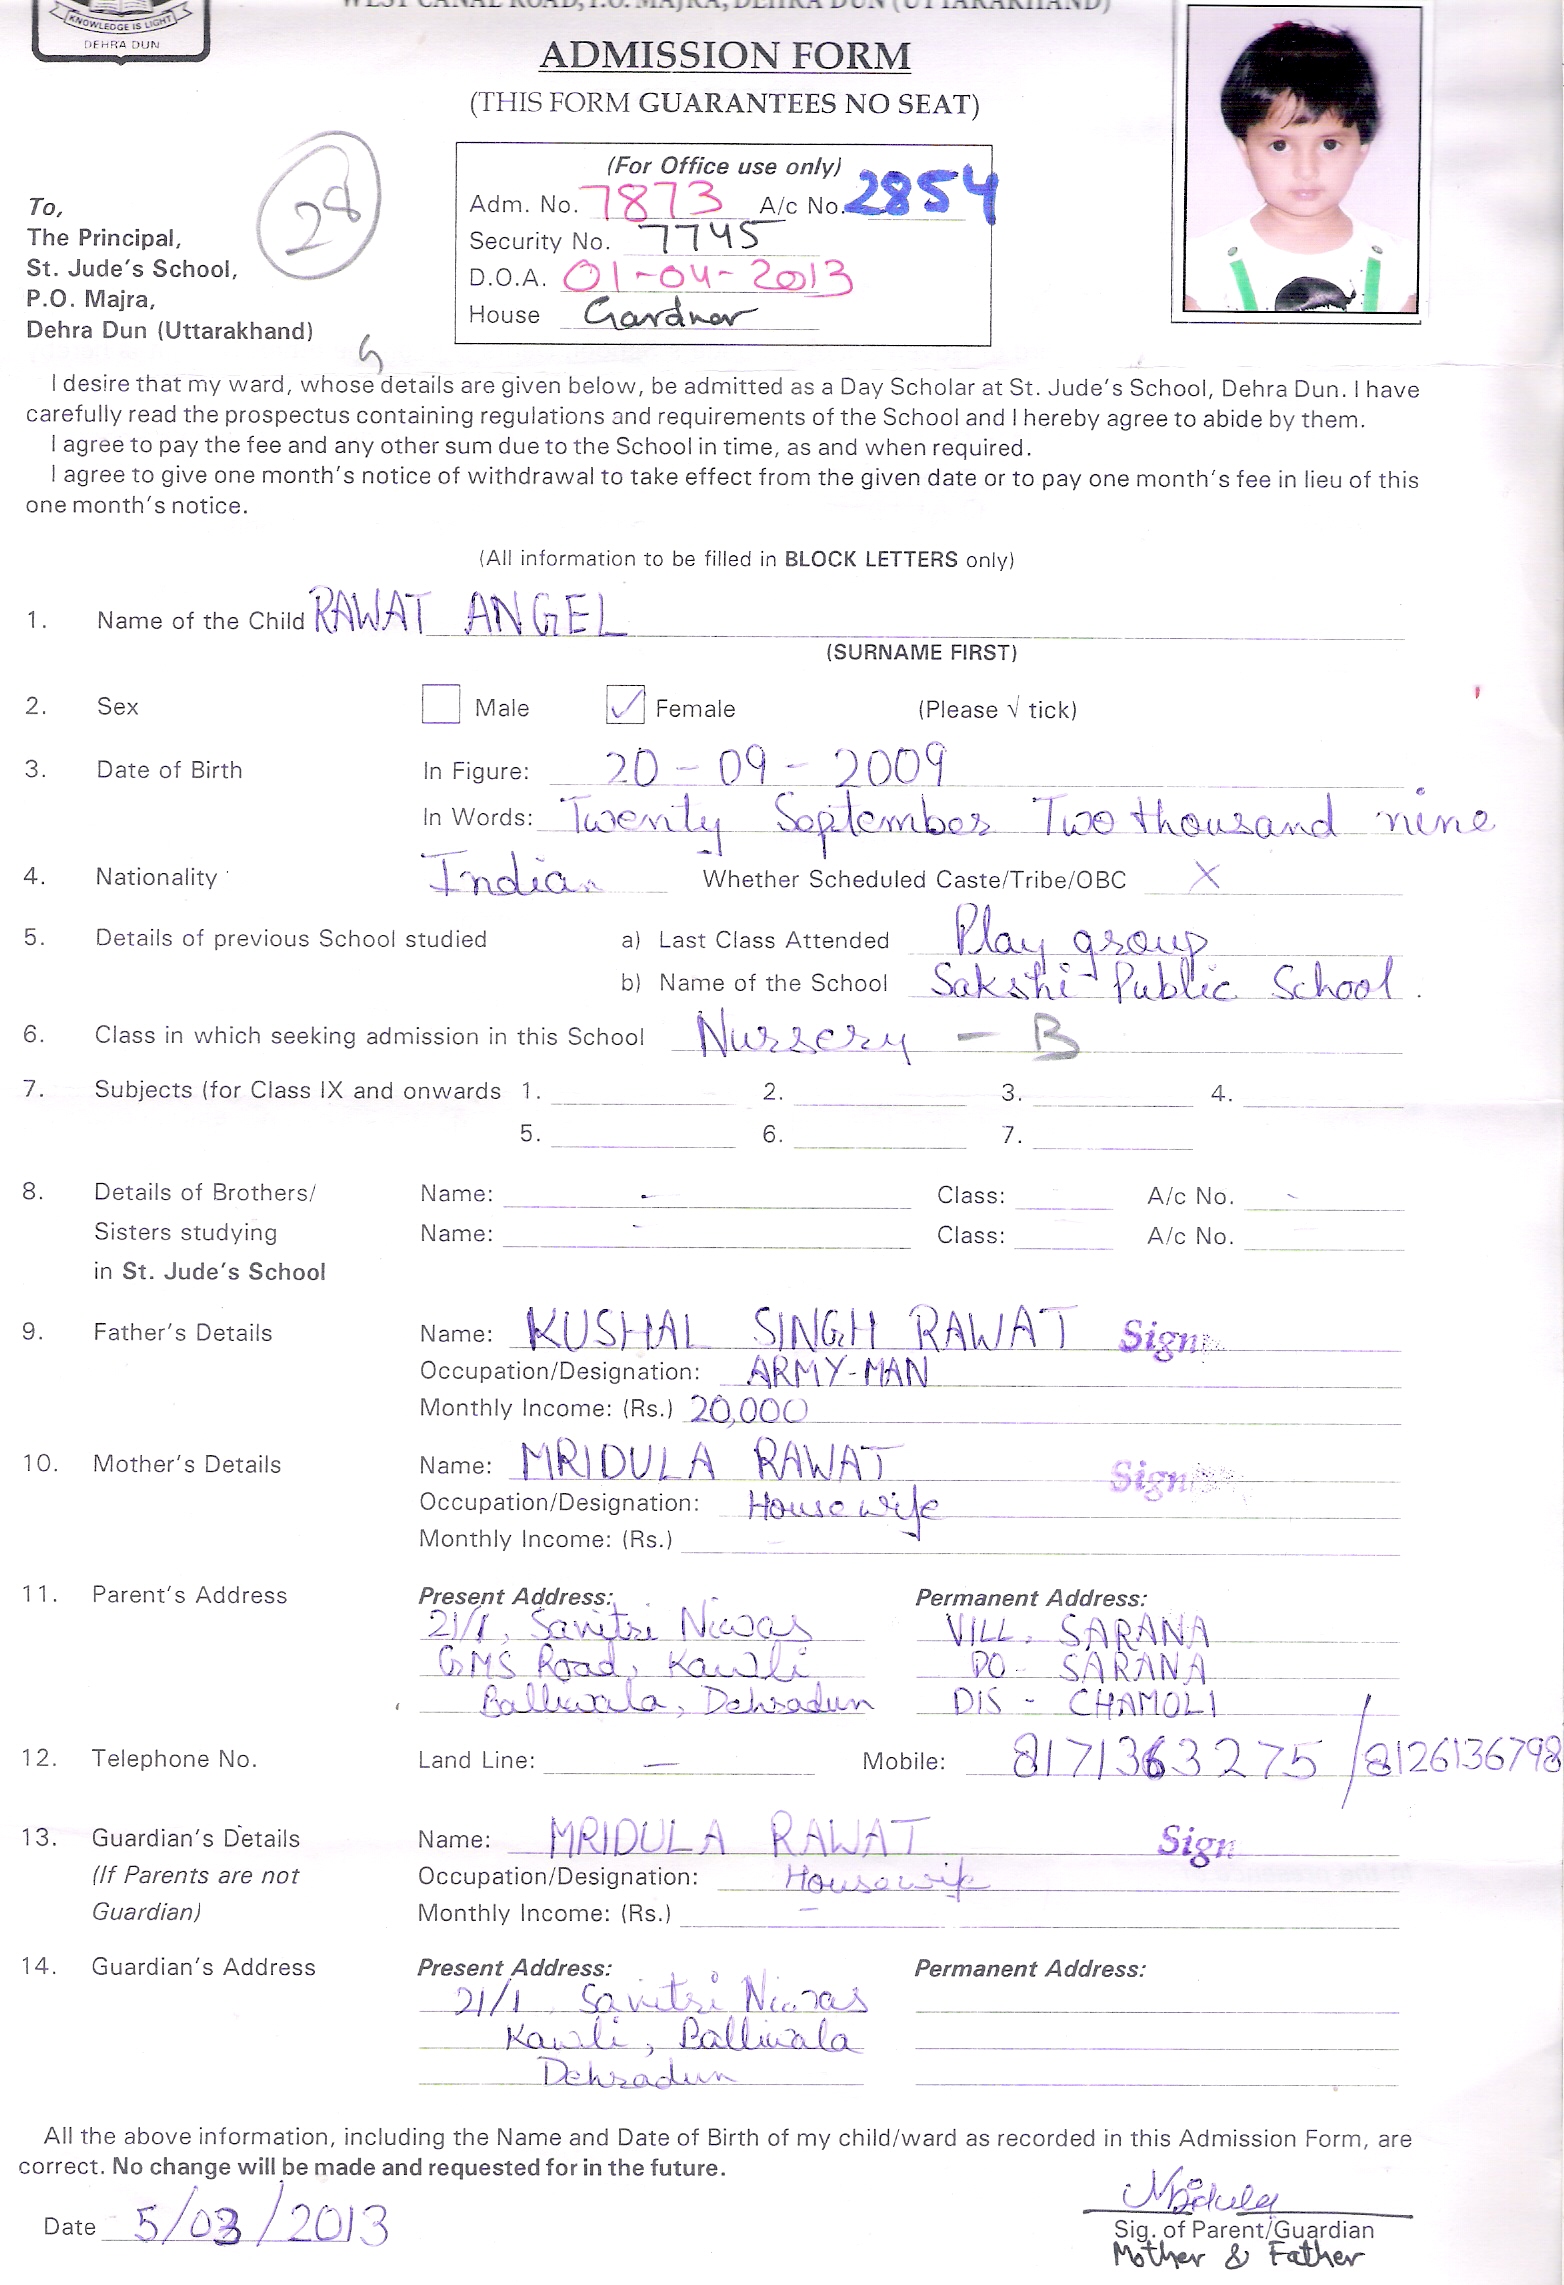 WEST CANAL ROAD, P.O. MAJRA, DEHRA DUN (UTTARAKHAND)
KNOWLEDGE IS LIGHT
DEHRA DUN
ADMISSION FORM
(THIS FORM GUARANTEES NO SEAT)
28
(For Office use only)
Adm. No. 7873 A/c No. 2854
Security No. 7745
D.O.A. 01-04-2013
House Gardner
To,
The Principal,
St. Jude's School,
P.O. Majra,
Dehra Dun (Uttarakhand)
I desire that my ward, whose details are given below, be admitted as a Day Scholar at St. Jude's School, Dehra Dun. I have
carefully read the prospectus containing regulations and requirements of the School and I hereby agree to abide by them.
I agree to pay the fee and any other sum due to the School in time, as and when required.
I agree to give one month's notice of withdrawal to take effect from the given date or to pay one month's fee in lieu of this
one month's notice.
(All information to be filled in BLOCK LETTERS only)
1. Name of the Child RAWAT ANGEL
(SURNAME FIRST)
2. Sex Male ✓ Female (Please √ tick)
3. Date of Birth In Figure: 20-09-2009
In Words: Twenty September Two thousand nine
4. Nationality Indian Whether Scheduled Caste/Tribe/OBC X
5. Details of previous School studied a) Last Class Attended Play group
b) Name of the School Sakshi Public School.
6. Class in which seeking admission in this School Nursery - B
7. Subjects (for Class IX and onwards 1. 2. 3. 4.
5. 6. 7.
8. Details of Brothers/ Name: - Class: A/c No. -
Sisters studying Name: - Class: A/c No.
in St. Jude's School
9. Father's Details Name: KUSHAL SINGH RAWAT Sign
Occupation/Designation: ARMY-MAN
Monthly Income: (Rs.) 20,000
10. Mother's Details Name: MRIDULA RAWAT Sign
Occupation/Designation: Housewife
Monthly Income: (Rs.)
11. Parent's Address Present Address: Permanent Address:
21/1, Savitri Niwas VILL. SARANA
GMS Road, Kawli PO - SARANA
Balliwala, Dehradun DIS - CHAMOLI
12. Telephone No. Land Line: — Mobile: 8171363275 / 8126136798
13. Guardian's Details Name: MRIDULA RAWAT Sign
(If Parents are not Occupation/Designation: Housewife
Guardian) Monthly Income: (Rs.) -
14. Guardian's Address Present Address: Permanent Address:
21/1 Savitri Niwas
Kawli, Balliwala
Dehradun
All the above information, including the Name and Date of Birth of my child/ward as recorded in this Admission Form, are
correct. No change will be made and requested for in the future.
Mridula
Date 5/03/2013
Sig. of Parent/Guardian
Mother & Father